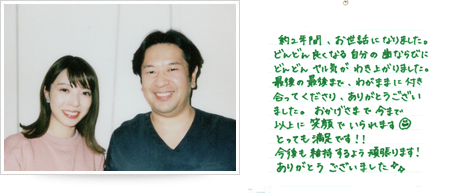 約2年間、お世話になりました。
どんどん良くなる自分の歯ならびに
どんどんヤル気がわき上がりました。
最後の最後まで、わがままに付き
合ってくださり、ありがとうござい
ました。おかげさまで今まで
以上に笑顔でいられます
とっても満足です!!
今後も維持するよう頑張ります!
ありがとうございました